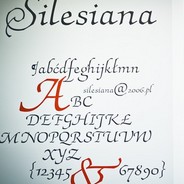 Silesiana
abcdefghijklmn
silesiana@2006.pl
ABC
DEFGHIJKL
MNOPQRSTUVW
XYZ
{12345 & 67890}